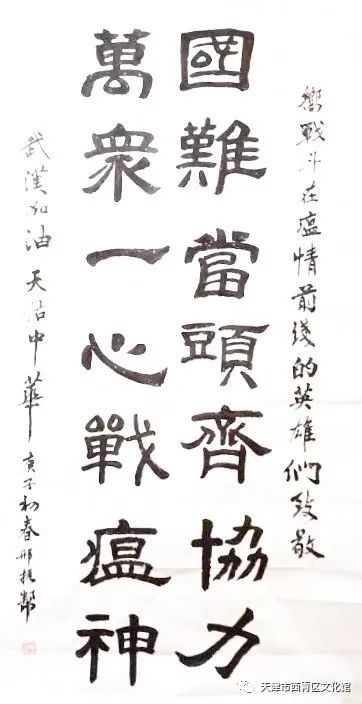 嚮戰斗在瘟情前线的英雄們致敬
國難當頭齊協力
萬衆一心戰瘟神
武漢加油 天佑中華 庚子初春 邢振
天津市西青区文化馆